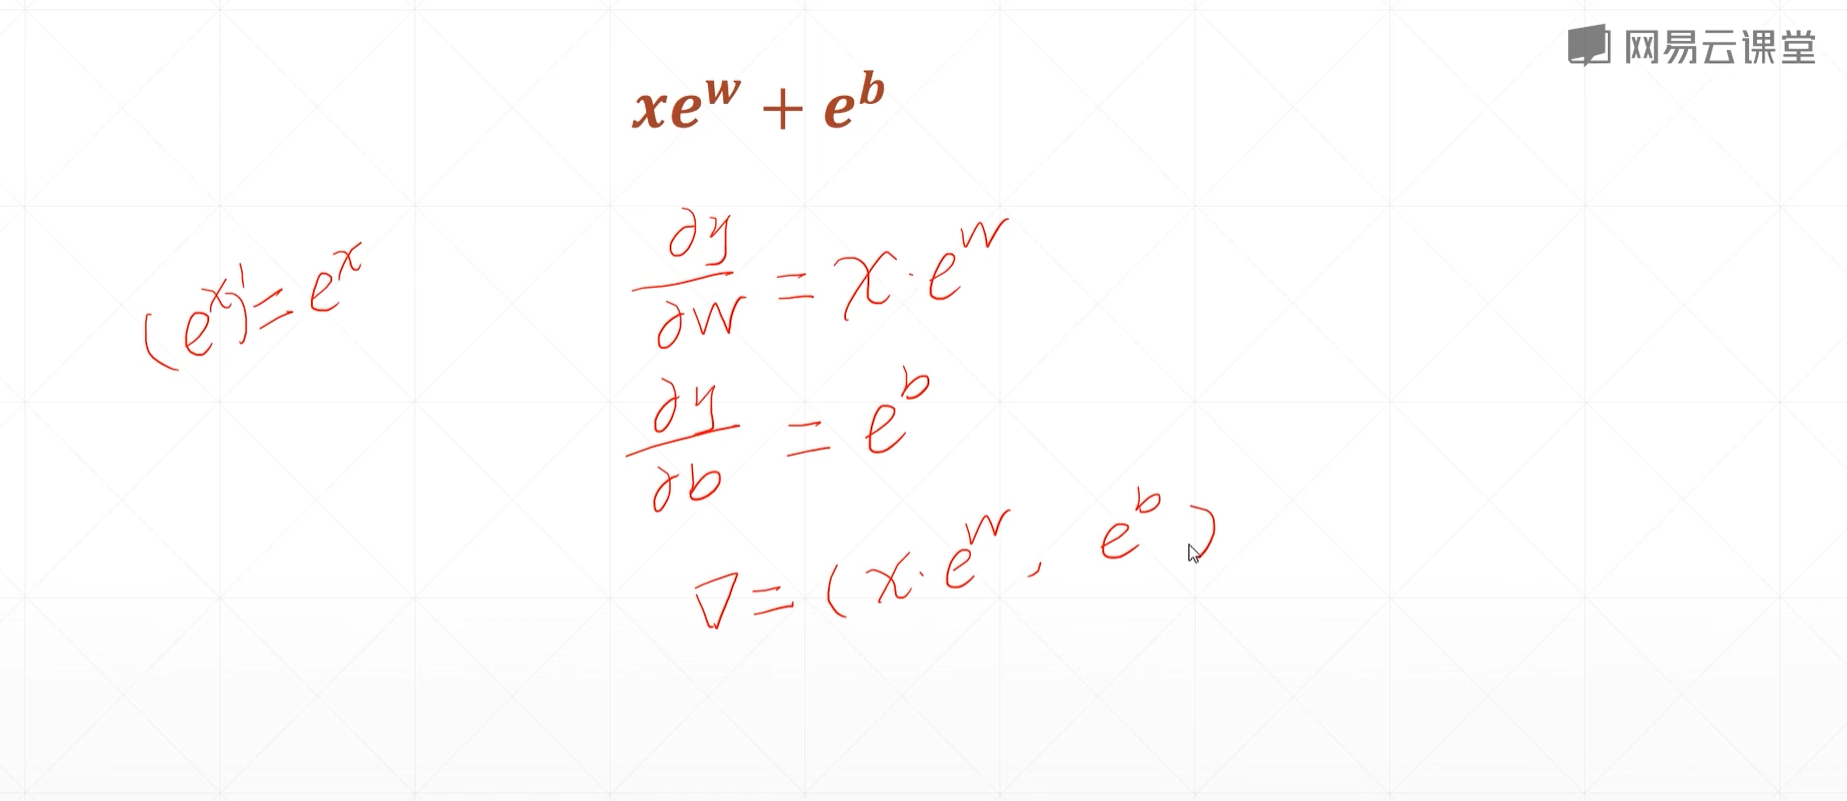 网易云课堂
xe^w + e^b
(e^x)' = e^x
∂y/∂w = x·e^w
∂y/∂b = e^b
∇ = (x·e^w, e^b)